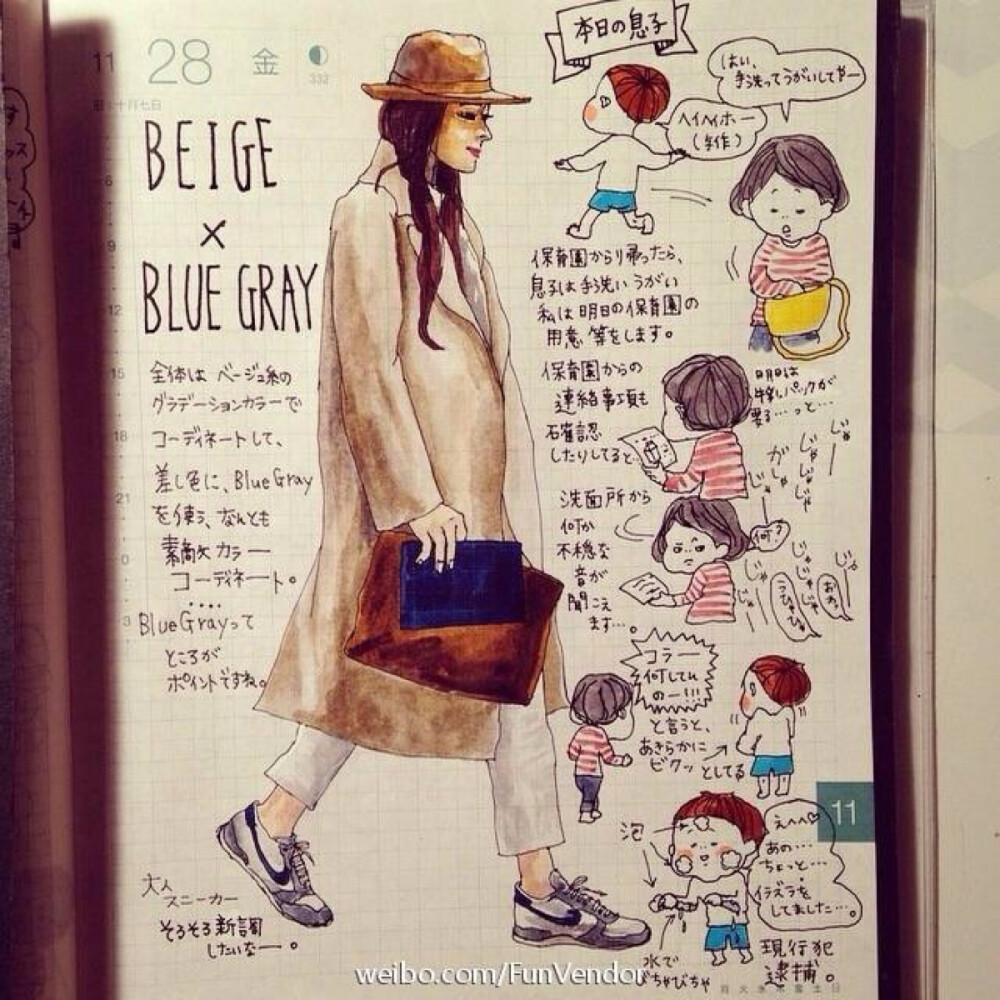 11
28
金
332
BEIGE
×
BLUE GRAY
全体は ベージュ系の
グラデーションカラーで
コーディネートして、
差し色に、Blue Gray
を使う、なんとも
素敵カラー
コーディネート。
Blue Grayって
ところが
ポイントですね。
大人
スニーカー
そろそろ新調
したいなー。
本日の息子
はい、
手洗ってうがいしてやー
ヘイヘイホー
保育園から帰ったら、
息子は手洗いうがい
私は明日の保育園の
用意等をします。
保育園からの
連絡事項も
確認
したりしてると
明日は
牛乳パックが
要る…っと…
じゃー
がし
じゃじゃ
洗面所から
何か
不穏な
音が
聞こえ
ます…。
何?
じゃじゃじゃ
じゃ
うひゃひゃ
コラー
何してん
のー!!!
と言うと、
あきらかに
ビクッ としてる
11
泡
えへへ♡
あの…
ちょっと…
イタズラを
してました…。
水で
びちゃびちゃ
現行犯
逮捕。
weibo.com/FunVendor
月 火 水 木 金 土 日